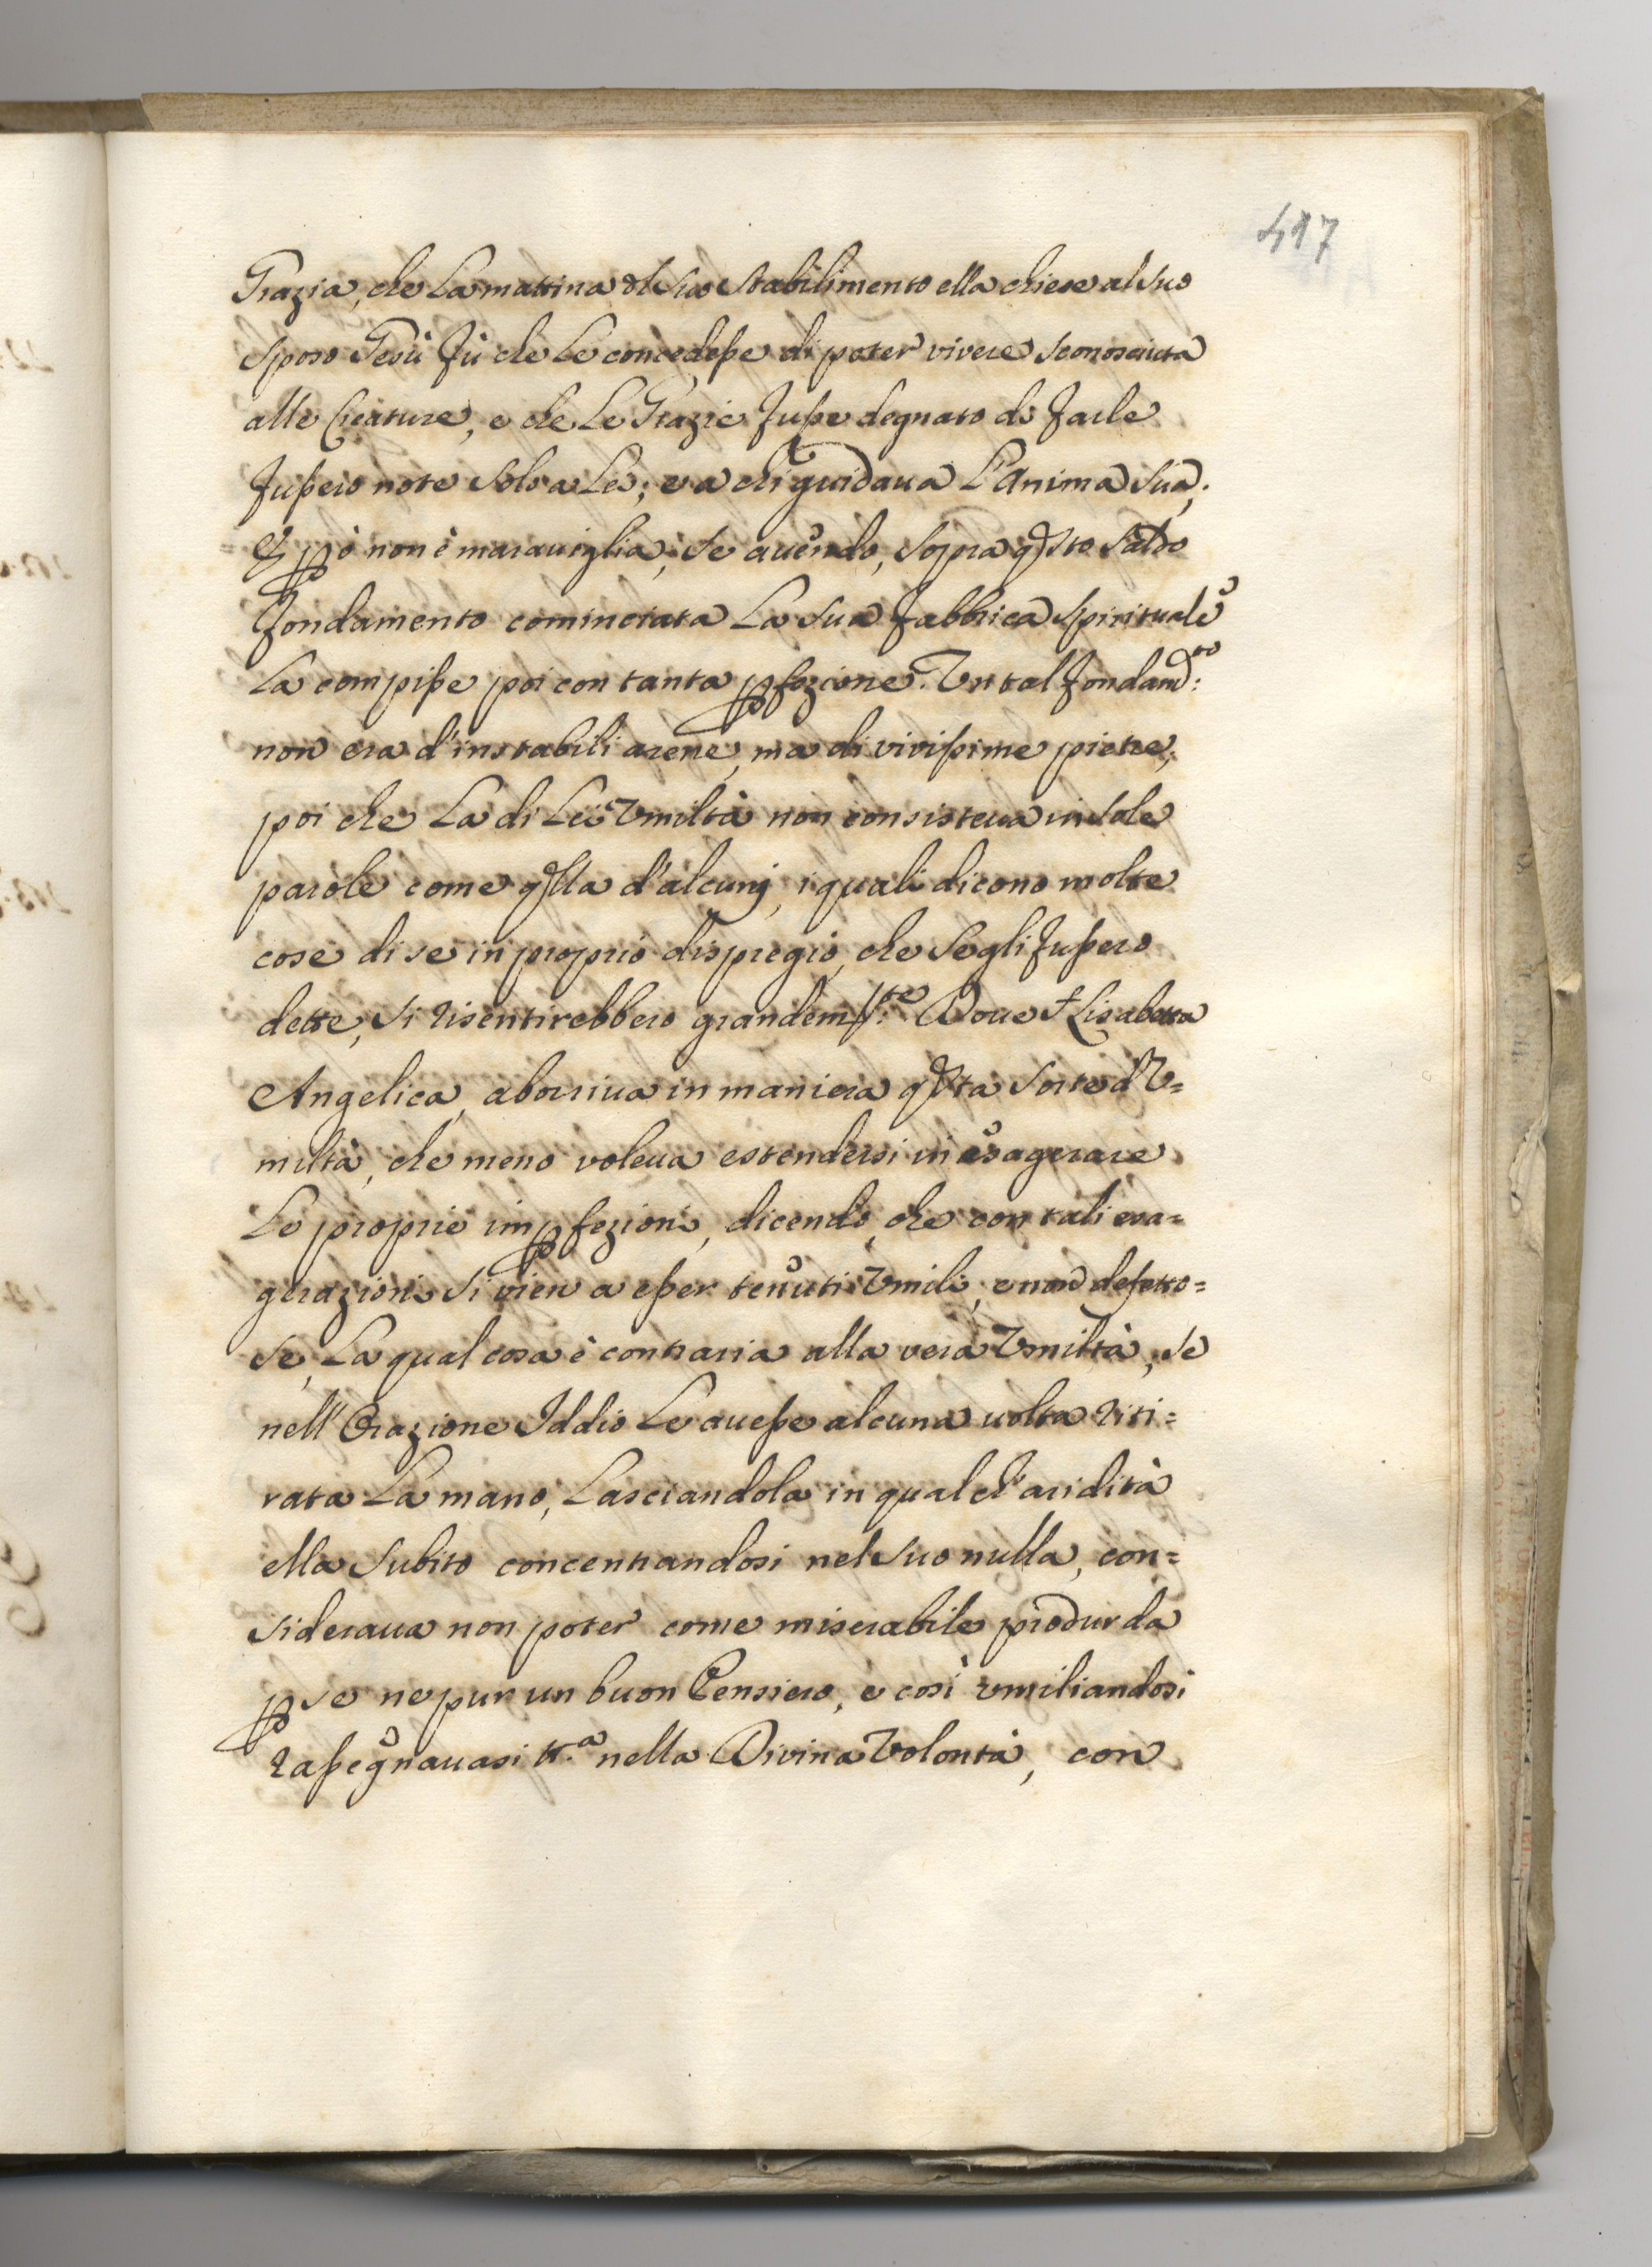 417
Grazia, che La mattina dl suo stabilimento ella chiese al suo
sposo Gesù fù che Le concedesse di poter vivere sconosciuta
alle Creature, e che Le Grazie fusse degnato di farle
fussero note solo a Lei; e a chi guidaua L'Anima sua;
& pò non è marauiglia, se auendo, sopra qsto saldo
fondamento cominciata La sua fabbrica spirituale
La compisse poi con tanta pfezione. Un tal fondamto:
non era d'instabili arene, ma di vivissime pietre;
poi che La di Lei Vmiltà non consisteua in sole
parole come qlla d'alcunj, i quali dicono molte
cose di se in proprio dispregio, che se gli fussero
dette, si risentirebbero grandemte: Doue S Lisabetta
Angelica, aborriua in maniera qsta sorte d'V=
miltà, che meno voleua estendersi in esagerare
Le proprie impfezioni, dicendo, che con tali esa=
gerazioni si vien a esser tenuti Vmili, e non defetto=
se, La qual cosa è contraria alla vera Vmiltà, se
nell'Orazione Iddio Le auesse alcuna uolta riti=
rata La mano, Lasciandola in qualch'aridità
ella subito concentrandosi nel suo nulla, con=
sideraua non poter come miserabile produr da
p se ne pur un buon Pensiero, e così vmiliandosi
rassegnauasi tt.a nella Divina Volontà, con